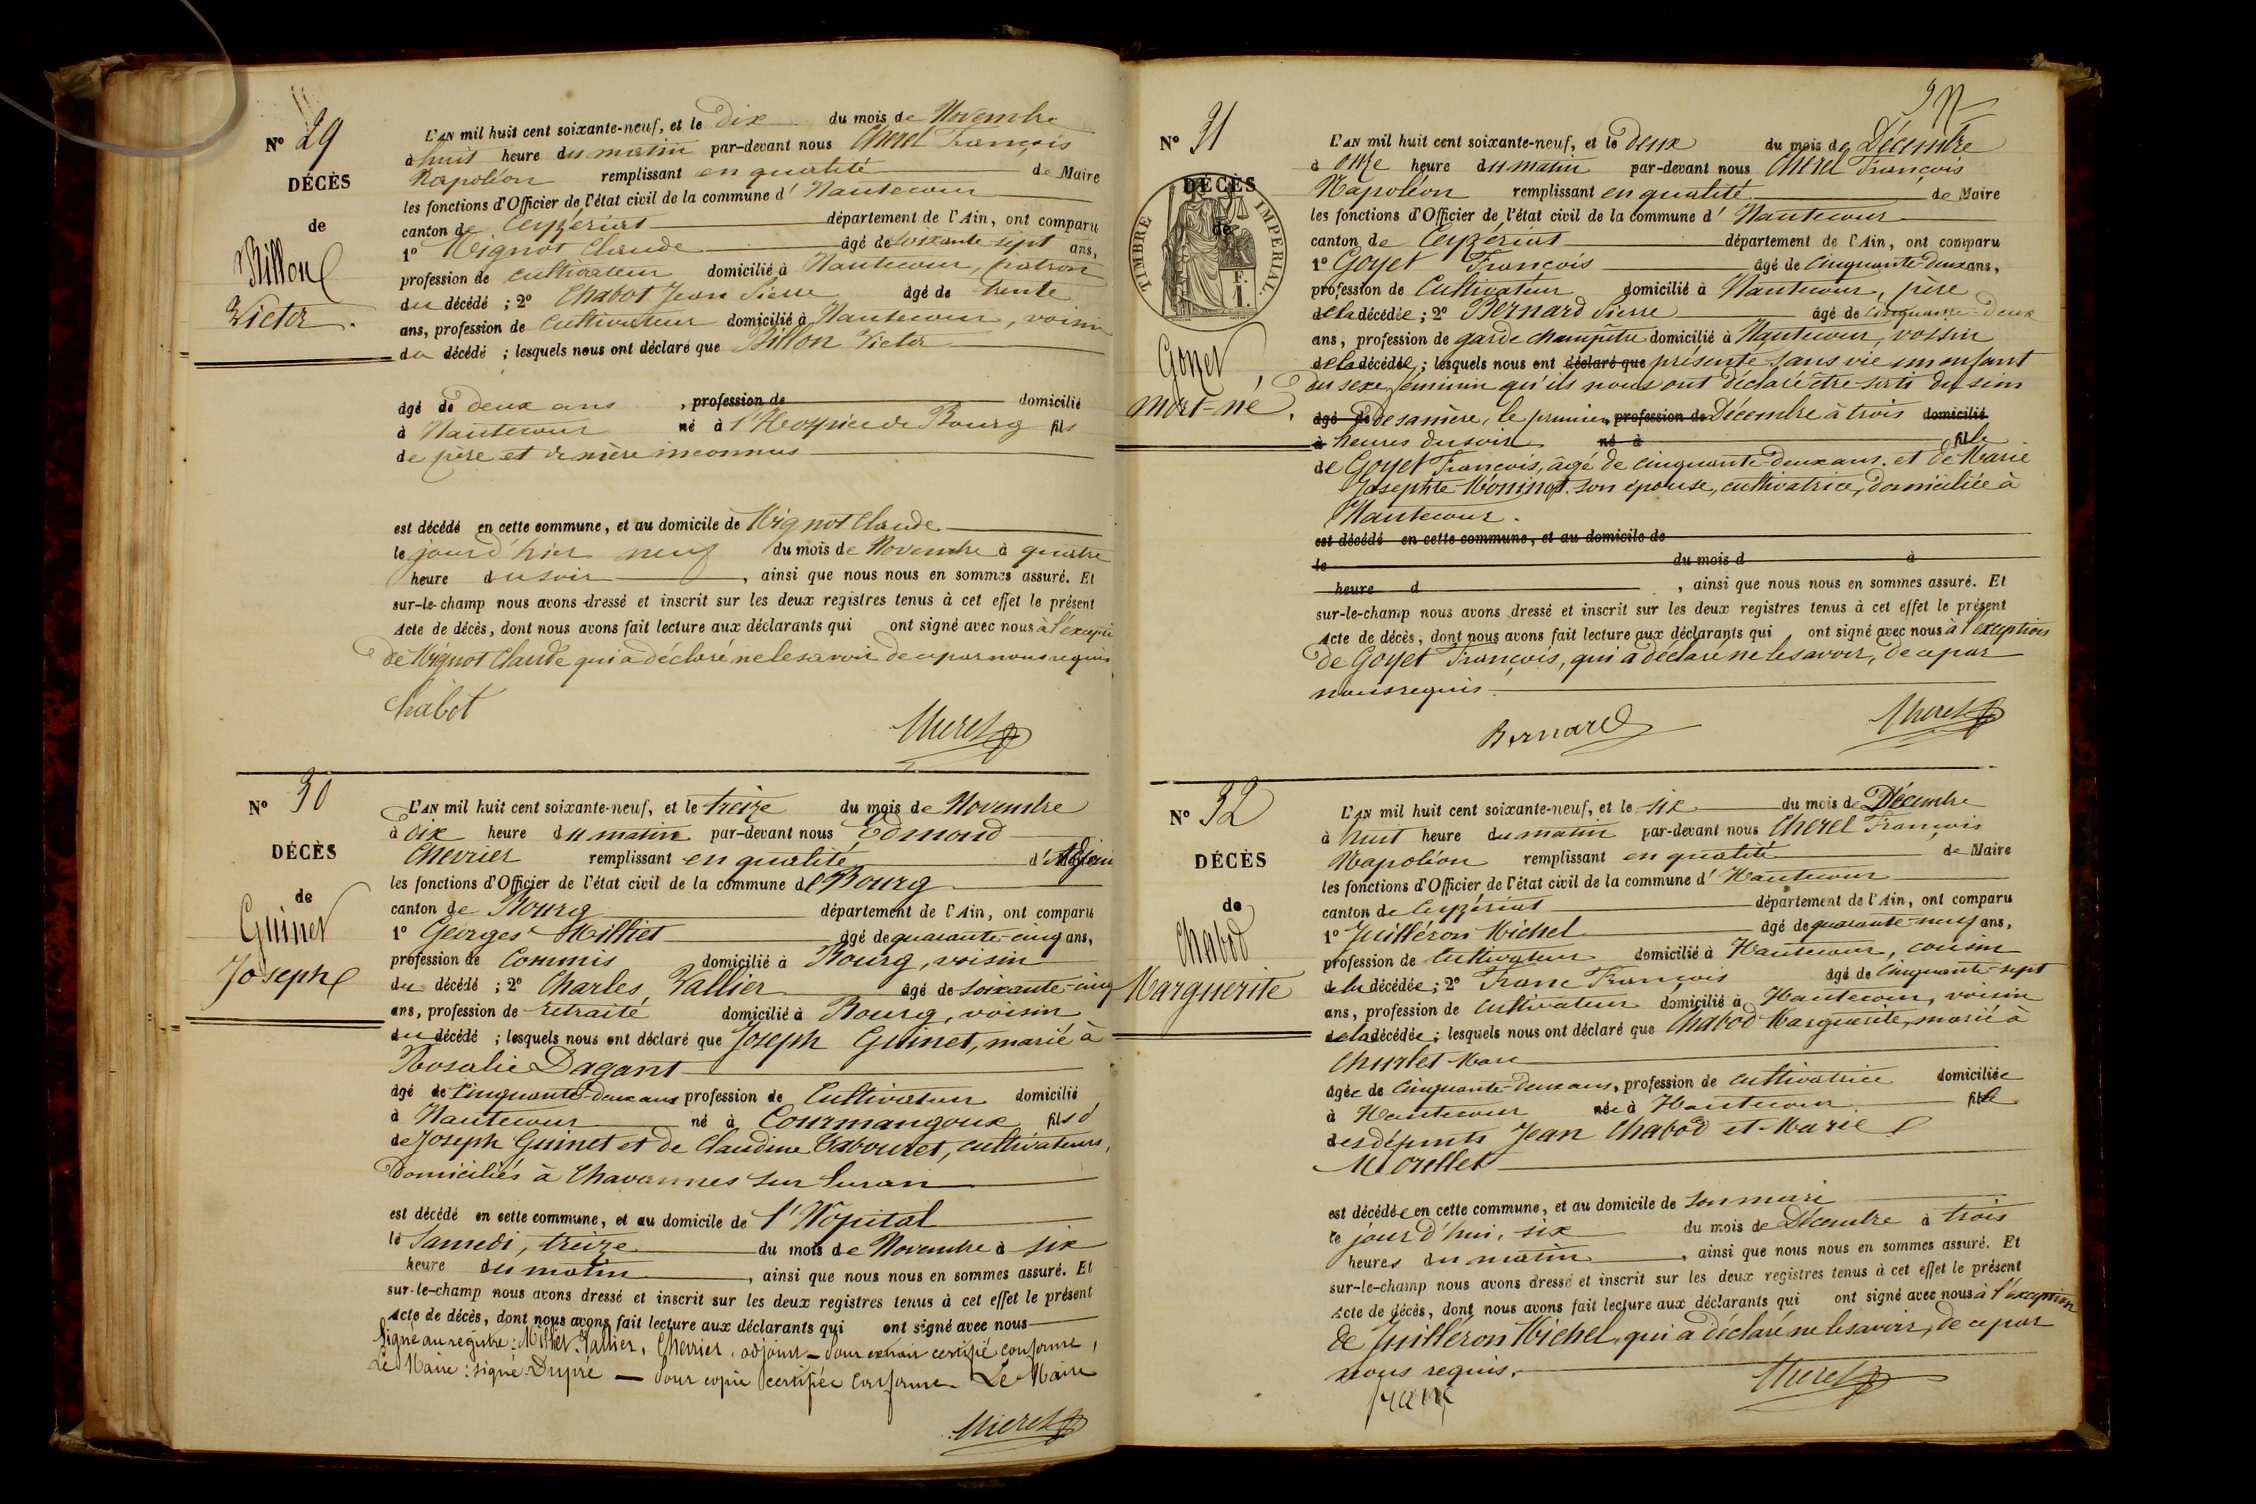 N° 29
DÉCÈS
de
Billon
Victor.
L'AN mil huit cent soixante-neuf, et le dix du mois de Novembre
à huit heure du matin par-devant nous Cherel François
Napoléon remplissant en qualité de Maire
les fonctions d'Officier de l'état civil de la commune d'Hautecour
canton de Ceyzériat département de l'Ain, ont comparu
1° Mignot Claude âgé de soixante-sept ans,
profession de cultivateur domicilié à Hautecour, patron
du décédé ; 2° Chabot Jean Pierre âgé de trente
ans, profession de cultivateur domicilié à Hautecour, voisin
du décédé ; lesquels nous ont déclaré que Billon Victor
âgé de deux ans , profession de domicilié
à Hautecour né à l'Hospice de Bourg fils
de père et de mère inconnus
est décédé en cette commune, et au domicile de Mignot Claude
le jour d'hier neuf du mois de Novembre à quatre
heure du soir , ainsi que nous nous en sommes assuré. Et
sur-le-champ nous avons dressé et inscrit sur les deux registres tenus à cet effet le présent
Acte de décès, dont nous avons fait lecture aux déclarants qui ont signé avec nous à l'excepti
de Mignot Claude qui a déclaré ne le savoir de ce par nous requis
Chabot
Cherel
N° 30
DÉCÈS
de
Guinet
Joseph
L'AN mil huit cent soixante-neuf, et le treize du mois de Novembre
à dix heure du matin par-devant nous Edmond
Chevrier remplissant en qualité d'Adjoint
les fonctions d'Officier de l'état civil de la commune de Bourg
canton de Bourg département de l'Ain, ont comparu
1° Georges Milliet âgé de quarante-cinq ans,
profession de Commis domicilié à Bourg, voisin
du décédé ; 2° Charles Vallier âgé de soixante-cinq
ans, profession de retraité domicilié à Bourg, voisin
du décédé ; lesquels nous ont déclaré que Joseph Guinet, marié à
Rosalie Dagant
âgé de Cinquante-deux ans profession de Cultivateur domicilié
à Hautecour né à Courmangoux fils d
de Joseph Guinet et de Claudine Tabouret, cultivateurs,
domiciliés à Chavannes sur Suran
est décédé en cette commune, et au domicile de l'Hôpital
le Samedi, treize du mois de Novembre à six
heure du matin , ainsi que nous nous en sommes assuré. Et
sur-le-champ nous avons dressé et inscrit sur les deux registres tenus à cet effet le présent
Acte de décès, dont nous avons fait lecture aux déclarants qui ont signé avec nous
Signé au registre : Milliet, Vallier, Chevrier, adjoint — Pour extrait certifié conforme,
Le Maire : signé Dupré — Pour copie certifiée Conforme Le Maire
Cherel
N° 31
DÉCÈS
de
TIMBRE IMPÉRIAL
Goyet,
mort-né.
L'AN mil huit cent soixante-neuf, et le deux du mois de Décembre
à onze heure du matin par-devant nous Cherel François
Napoléon remplissant en qualité de Maire
les fonctions d'Officier de l'état civil de la commune d'Hautecour
canton de Ceyzériat département de l'Ain, ont comparu
1° Goyet François âgé de cinquante-deux ans,
profession de Cultivateur domicilié à Hautecour, père
de la décédée ; 2° Bernard Pierre âgé de cinquante-deux
ans, profession de garde champêtre domicilié à Hautecour, voisin
de la décédée ; lesquels nous ont déclaré que présenté sans vie un enfant
du sexe féminin qu'ils nous ont déclaré être sorti du sein
âgé de de sa mère, le premier profession de Décembre à trois domicilié
à heures du soir né à fille
de Goyet François, âgé de cinquante-deux ans, et de Marie
Josephte Moninot son épouse, cultivatrice, domiciliée à
Hautecour.
est décédé en cette commune, et au domicile de
le du mois d à
heure d , ainsi que nous nous en sommes assuré. Et
sur-le-champ nous avons dressé et inscrit sur les deux registres tenus à cet effet le présent
Acte de décès, dont nous avons fait lecture aux déclarants qui ont signé avec nous à l'exception
de Goyet François, qui a déclaré ne le savoir, de ce par
nous requis.
Bernard
Cherel
N° 32
DÉCÈS
de
Chabod
Marguerite
L'AN mil huit cent soixante-neuf, et le six du mois de Décembre
à huit heure du matin par-devant nous Cherel François
Napoléon remplissant en qualité de Maire
les fonctions d'Officier de l'état civil de la commune d'Hautecour
canton de Ceyzériat département de l'Ain, ont comparu
1° Juilléron Michel âgé de quarante-neuf ans,
profession de Cultivateur domicilié à Hautecour, cousin
de la décédée ; 2° Franc François âgé de Cinquante-sept
ans, profession de Cultivateur domicilié à Hautecour, voisin
de la décédée ; lesquels nous ont déclaré que Chabod Marguerite, marié à
Churlet Marc
âgée de Cinquante-deux ans, profession de cultivatrice domiciliée
à Hautecour née à Hautecour fille
des défunts Jean Chabod et Marie
Morellet
est décédée en cette commune, et au domicile de son mari
le jour d'hui, six du mois de Décembre à trois
heures du matin , ainsi que nous nous en sommes assuré. Et
sur-le-champ nous avons dressé et inscrit sur les deux registres tenus à cet effet le présent
Acte de décès, dont nous avons fait lecture aux déclarants qui ont signé avec nous à l'exception
de Juilléron Michel, qui a déclaré ne le savoir, de ce par
nous requis.
franc
Cherel